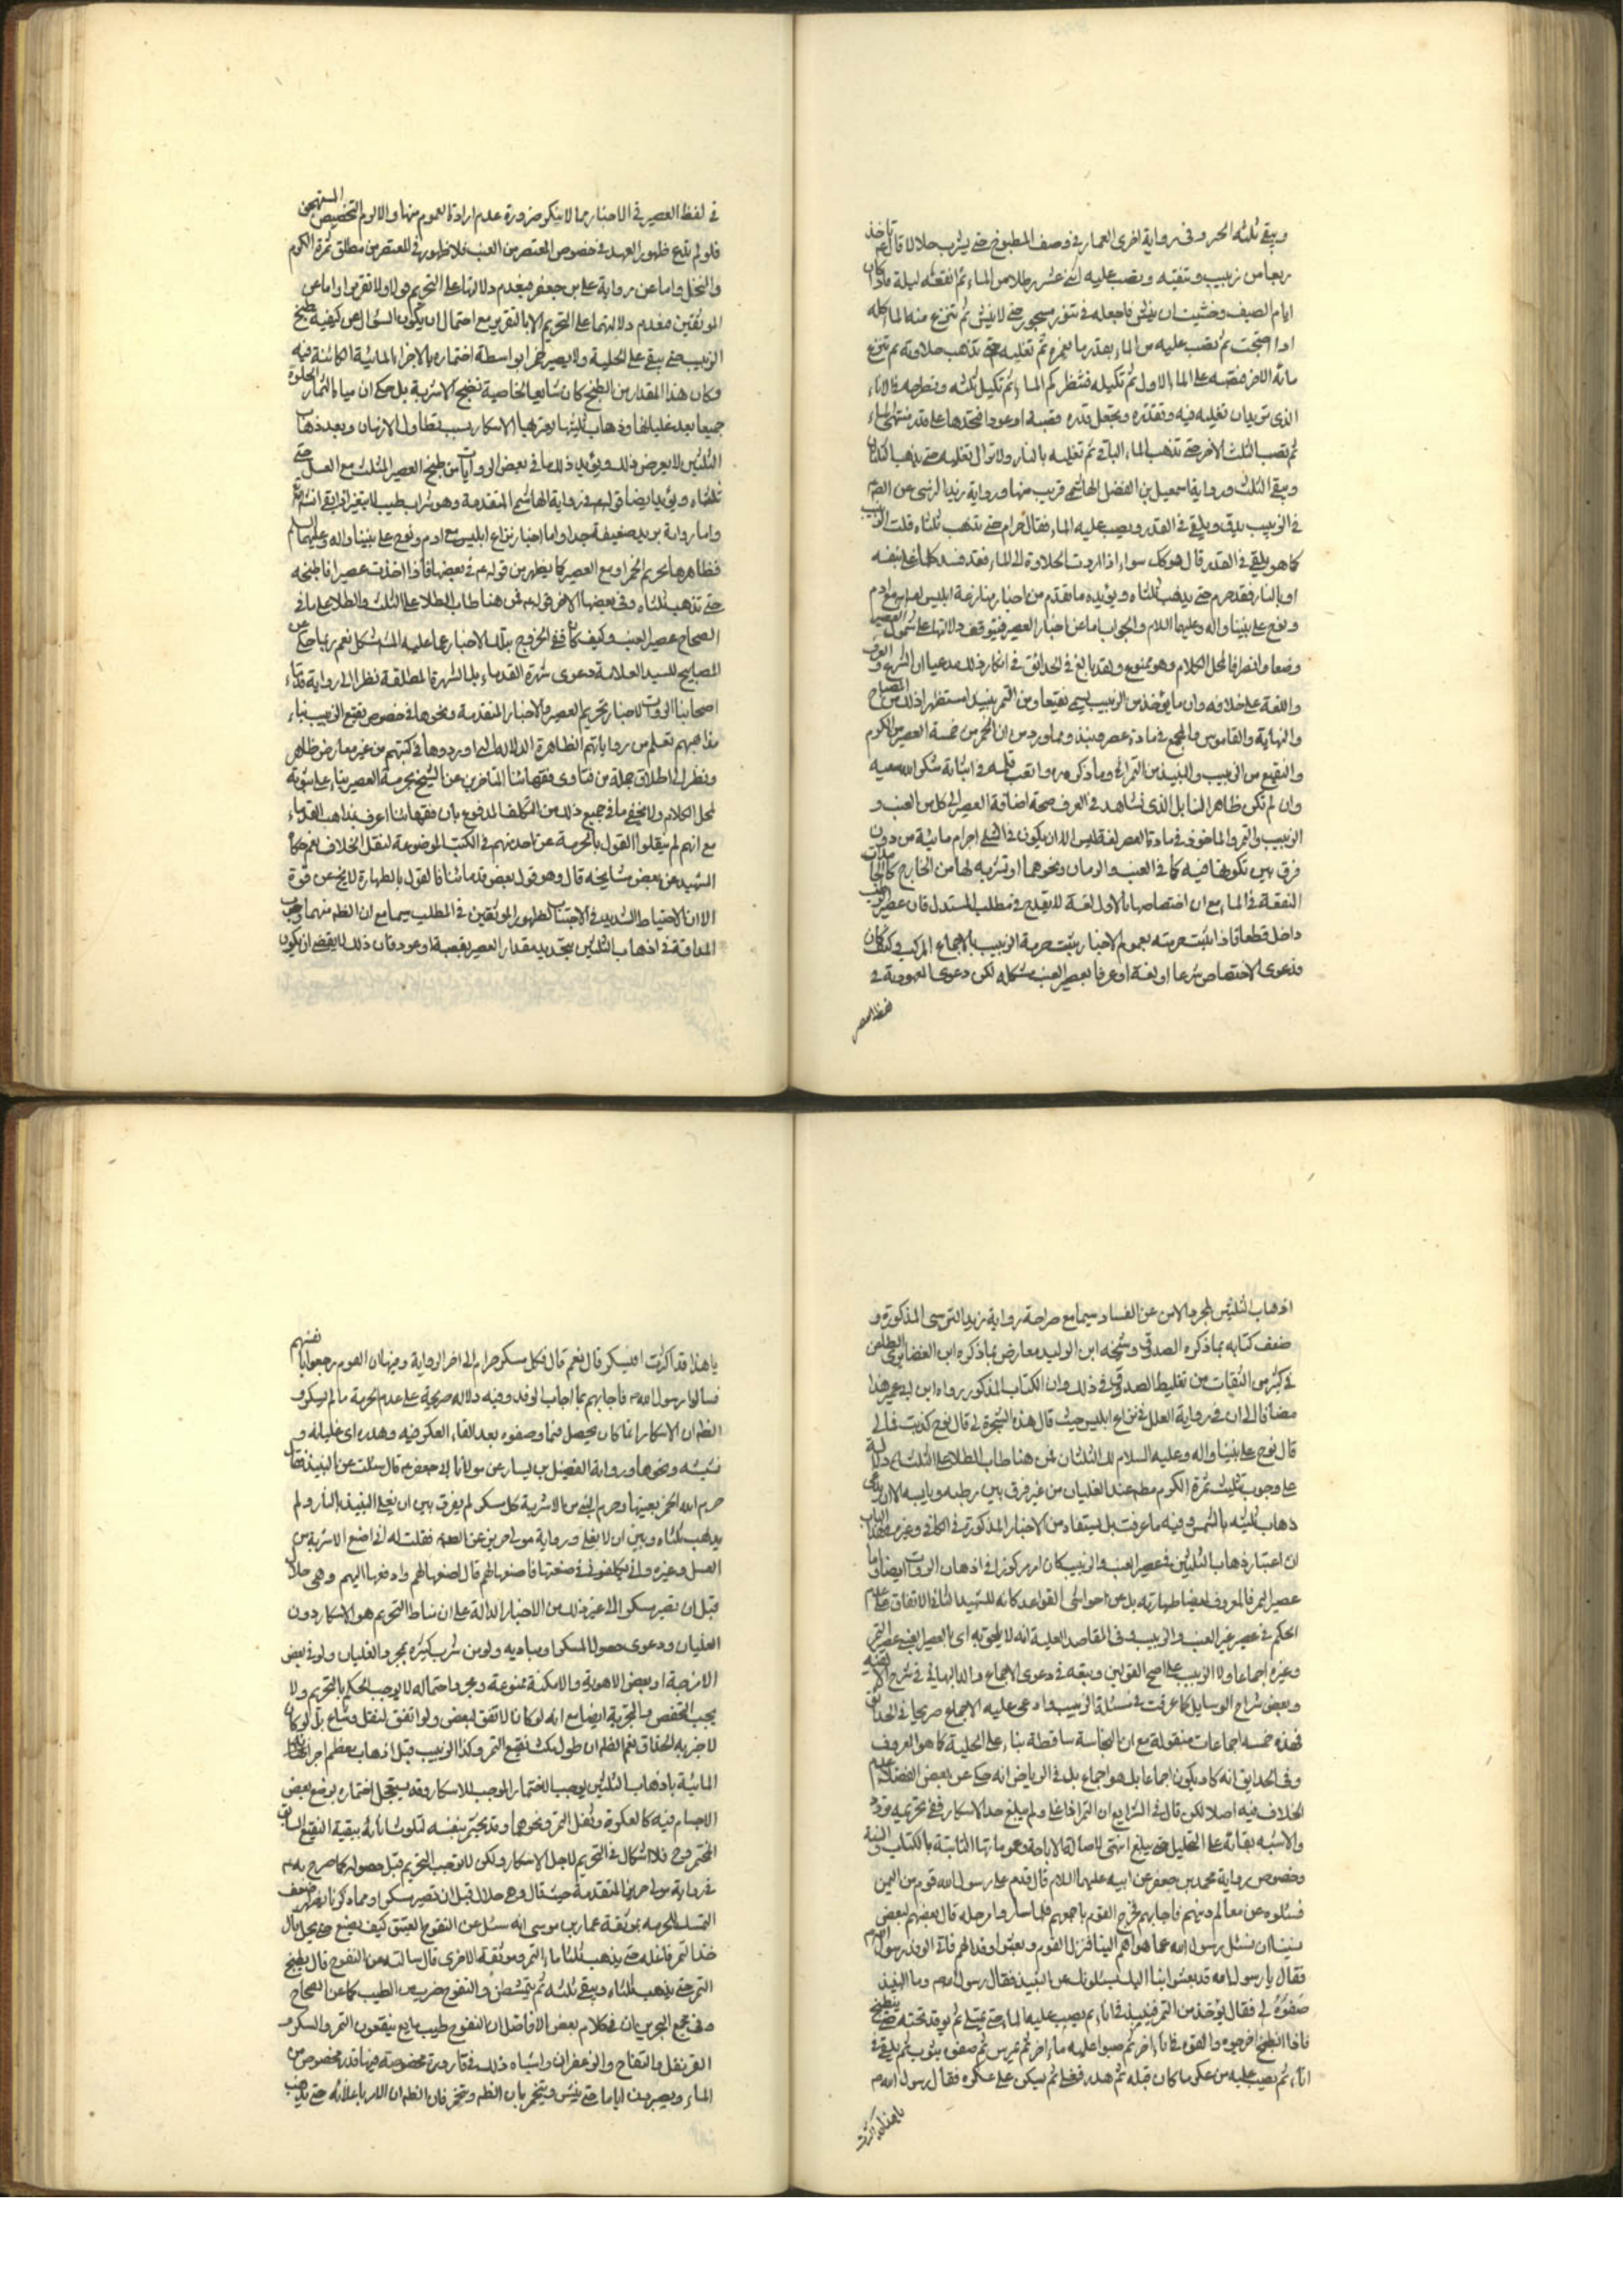 ويبقى ثلثه الحديث وفى رواية اخرى لعمار في وصف المطبوخ حتى يشرب حلالا قال تاخذ
ربعا من زبيب وتنقيه وتصب عليه اثنى عشر رطلا من الماء ثم انقعه ليلة فاذا كان
ايام الصيف وخشيت ان ينش فاجعله في تنور مسجور حتى لا ينش ثم تنزع منه الماء كله
اذا اصبحت ثم تصب عليه من الماء بقدر ما يغمره ثم تغليه حتى تذهب حلاوته ثم تنزع
مائه الاخر فتصبه على الماء الاول ثم تكيله فتنظر كم الماء ثم تكيل ثلثه وتطرحه في الاناء
الذى تريد ان تغليه فيه وتقدره وتجعل قدره قصبة او عودا فتحدها على قدر منتهى الماء
ثم تصب الثلث الاخر حتى تذهب الماء الباقي ثم تغليه بالنار ولا تزال تغليه حتى يذهب الثلثان
ويبقى الثلث ورواية اسمعيل بن الفضل الهاشمي قريب منها ورواية زيد النرسى عن الصم
في الزبيب يدق ويلقى في القدر ويصب عليه الماء فقال حرام حتى يذهب ثلثاه قلت الزبيب
كما هو يلقى في القدر قال هو كك سواء اذا ادت الحلاوة الى الماء فقد فسد كلما غلى بنفسه
او بالنار فقد حرم حتى يذهب ثلثاه ويؤيده ما تقدم من اخبار منازعة ابليس مع ادم
ونوح على نبينا واله وعليهما السلام والجواب اما عن اخبار العصير فيتوقف دلالتها على شمول العصير
وضعا وانصرافا لمحل الكلام وهو ممنوع ولقد بالغ في الحدائق في انكار ذلك مدعيا ان الشرع والعرف
واللغة على خلافه وان ما يؤخذ من الزبيب يسمى نقيعا ومن التمر نبيذ استظهر ذلك من المصباح
والنهاية والقاموس والمجمع في مادة عصر ونبذ ومما ورد من ان الخمر من خمسة العصير من الكرم
والنقيع من الزبيب والنبيذ من التمر الى وما ذكره واتعب قلمه في اثباته شكر الله سعيه
وان لم يكن ظاهر المنابل الذى نشاهد في العرف صحة اضافة العصير الى كل من العنب و
الزبيب والتمر والماخوذ في مادة العصر لغة ليس الا ان يكون في الشيء اجرام مائية من دون
فرق بين تكونها فيه كما في العنب والرمان ونحوهما او تشربه لها من الخارج كالجامدات
المنقعة في الماء مع ان اختصاصها بالاول لغة لا يقدح في مطلب المستدل فان عصير الزبيب
داخل قطعا فاذا ثبت حرمته بعموم الاخبار يثبت حرمة الزبيب بالاجماع المركب وكيف كان
فدعوى الاختصاص شرعا او لغة او عرفا بعصير العنب مشكلة لكن دعوى العهدية في
لفظ العصير
في لفظ العصير في الاخبار مما لا ينكر ضرورة عدم ارادة العموم منها والا لزم التخصيص المستهجن
فلو لم ندع ظهور العهد في خصوص المعتصر من العنب فلا ظهور في المعتصر من مطلق ثمرة الكرم
والنخل واما عن رواية على بن جعفر فبعدم دلالتها على التحريم قولا ولا تقريرا واما عن
الموثقتين فبعدم دلالتهما على التحريم الا بالتقرير مع احتمال ان يكون السؤال عن كيفية طبخ
الزبيب حتى يبقى على الحلية ولا يصير خمرا بواسطة اختماره بالاجزاء المائية الكائنة فيه
وكان هذا المقدار من الطبخ كان شايعا لخاصية تنضيج الاشربة بل حكى ان مياه الثمار الحلوة
جميعا بعد غليانها وذهاب ثلثها يعرضها الاسكار بسبب تطاول الازمان وبعد ذهاب
الثلثين لا يعرض ذلك ويؤيد ذلك ما في بعض الروايات من طبخ العصير المثلث مع العسل حتى
ثلثاه ويؤيد ايضا قوله في رواية الهاشمى المتقدمة وهو شراب طيب لا يتغير اذا بقى انش
واما رواية يزيد ضعيفة جدا واما اخبار نزاع ابليس مع ادم ونوح على نبينا واله وعليهما السلام
فظاهرها تحريم الخمر او مع العصير كما يظهر من قوله ع في بعضها فاذا اخذت عصيرا فاطبخه
حتى تذهب ثلثاه وفى بعضها الاخر قوله فمن هنا طاب الطلا على الثلث والطلا على ما في
الصحاح عصير العنب وكيف كان فالخروج بتلك الاخبار عما عليه المش مشكل نعم ربما حكى عن
المصابيح للسيد العلامة دعوى شهرة القدماء بل الشهرة المطلقة نظرا الى رواية قدماء
اصحابنا الرواة لاخبار تحريم العصير والاخبار المتقدمة ونحوها في خصوص نقيع الزبيب بناء
مذاهبهم تعلم من رواياتهم الظاهرة الدلالة التي اوردوها في كتبهم من غير معارض ظاهر
ونظرا الى اطلاق جملة من فتاوى فقهائنا المتاخرين عن الشيخ بحرمة العصير بناء على شموله
لمحل الكلام ولا يخفى ما في جميع ذلك من التكلف المدفوع بان فقهائنا اعرف بمذاهب القدماء
مع انهم لم ينقلوا القول بالحرمة عن احد منهم في الكتب الموضوعة لنقل الخلاف نعم حكاه
الشهيد عن بعض مشايخه قال وهو قول بعض قدمائنا فالقول بالطهارة لا يخ عن قوة
الا ان الاحتياط الشديد في الاجتناب لظهور الموثقين في المطلب سيما مع ان الظم منهما وجوب
المداقة في اذهاب الثلثين بتحديد مقدار العصير بقصبة او عود فان ذلك لا يقضى ان يكون
اذهاب الثلثين لمجرد الامن عن الفساد سيما مع صراحة رواية زيد النرسى المذكورة و
ضعف كتابه بما ذكره الصدوق وشيخه ابن الوليد معارض بما ذكره ابن الغضائرى الطاعن
في كثير من الثقات من تغليط الصدوق في ذلك وان الكتاب المذكور رواه ابن ابى عمير هذا
مضافا الى ان في رواية العلل في نزاع ابليس حيث قال هذه الشجرة لى قال نوح كذبت فما لى
قال نوح على نبينا واله وعليه السلام لك الثلثان فمن هنا طاب الطلا على الثلث دلالة
على وجوب تثليث ثمرة الكرم مطم عند الغليان من غير فرق بين رطبه ويابسه الا ان يدعى
ذهاب ثلثيه بالشمس وفيه ما عرفت بل يستفاد من الاخبار المذكورة في الكافى وغيره
ان اعتبار ذهاب الثلثين في عصير العنب والزبيب كان امرا مركوزا في اذهان الرواة ايضا واما
عصير التمر فالمعروف ايضا طهارته بل عن حواشى القواعد كانه للشهيد الثانى الاتفاق على عدم
الحكم في عصير غير العنب والزبيب وفى المقاصد العلية انه لا يلحق به اى بالعصير العنبى عصير التمر
وغيره اجماعا ولا الزبيب على اصح القولين وتبعه في دعوى الاجماع والد البهائى في شرح الالفية
وبعض شراح الوسايل كما عرفت في مسئلة الزبيب وادعى عليه الاجماع صريحا في الحدائق
فهذه خمسة اجماعات منقولة مع ان النجاسة ساقطة بناء على الحلية كما هو المعروف
وفى الحدايق انه كاد يكون اجماعا بل هو اجماع بل في الرياض انه حكى عن بعض الفضلاء عدم
الخلاف فيه اصلا لكن قال في الشرايع ان التمر اذا غلى ولم يبلغ حد الاسكار ففى تحريمه تردد
والاشبه بقائه على التحليل حتى يبلغ انتهى لاصالة الاباحة وعموماتها الثابتة بالكتاب والسنة
وخصوص رواية محمد بن جعفر عن ابيه عليهما السلام قال قدم على رسول الله قوم من اليمن
فسئلوه عن معالم دينهم فاجابهم فخرج القوم باجمعهم فلما ساروا مرحلة قال بعضهم لبعض
نسينا ان نسئل رسول الله عما هو اهم الينا فنزل القوم وبعثوا وفدا لهم فاتى الوفد رسول الله
فقال يا رسول الله قد بعثوا بنا اليك يسئلونك عن النبيذ فقال رسول الله وما النبيذ
صفوه لى فقال يؤخذ من التمر فينبذ في اناء ثم يصب عليه الماء حتى يمتلى ثم يوقد تحته حتى ينطبخ
فاذا انطبخ اخرجوه والقوه في اناء اخر ثم صبوا عليه ماء اخر ثم مرس ثم صفوه بثوب ثم يلقى في
اناء ثم يصب عليه من عكر ما كان قبله ثم هدر فغلى ثم سكن على عكره فقال رسول الله
يا هذا قد اكثرت
يا هذا قد اكثرت افيسكر قال نعم قال فكل مسكر حرام الى اخر الرواية ومنها ان القوم رجعوا بانفسهم
فسالوا رسول الله فاجابهم بما اجاب الوفد وفيه دلالة صريحة على عدم الحرمة ما لم يسكر و
الظم ان الاسكار انما كان يحصل فيما وصفوه بعد القاء العكر فيه وهدره اى غليانه و
نشيشه ونحوها ورواية الفضيل بن يسار عن مولانا ابى جعفر قال سئلت عن النبيذ فقال
حرم الله الخمر بعينها وحرم النبى من الاشربة كل مسكر لم يفرق بين ان يغلى النبيذ بالنار ولم
يذهب ثلثاه وبين ان لا يغلى ورواية مولى حريز عن الصم فقلت له انى اصنع الاشربة من
العسل وغيره وانى يكلفونى في صنعتها فاصنعها لهم قال اصنعها لهم وادفعها اليهم وهى حلال
قبل ان تصير مسكرا الى غير ذلك من الاخبار الدالة على ان مناط التحريم هو الاسكار دون
الغليان ودعوى حصول المسكر او مباديه ولو من شرب كثيره بمجرد الغليان ولو في بعض
الامزجة او بعض الاهوية والامكنة ممنوعة ومجرد احتماله لا يوجب الحكم بالتحريم ولا
يجب التفحص بالتجربة ايضا مع انه لو كان لاتفق لبعض ولو اتفق لنقل وشاع بل لو كان
لاخبر به الحذاق نعم الظم ان طول مكث نقيع التمر وكذا الزبيب قبل اذهاب معظم اجزائها
المائية باذهاب الثلثين يوجب الاختمار الموجب للاسكار وقد يستعجل اختماره بوضع بعض
الاجسام فيه كالعكرة وثفل التمر ونحوهما وقد يختمر بنفسه لتلوث انائه ببقية النقيع السابق
المختمر وح فلا اشكال في التحريم لاجل الاسكار ولكن لا يوجب التحريم قبل حصوله كما صرح به
في رواية مولى حريز المتقدمة حيث قال وهى حلال قبل ان تصير مسكرا ومما ذكرنا يظهر ضعف
التمسك للحرمة بموثقة عمار بن موسى انه سئل عن النضوح العتيق كيف يصنع حتى يحل قال
خذ التمر فاغله حتى يذهب ثلثا ماء التمر وموثقة الاخرى قال سالته عن النضوح قال يطبخ
التمر حتى يذهب ثلثاه ويبقى ثلثه ثم يتمشطن والنضوح ضرب من الطيب كما عن الصحاح
وفى مجمع البحرين ان في كلام بعض الافاضل ان النضوح طيب مايع ينقعون التمر والسكر و
القرنفل والتفاح والزعفران واشباه ذلك في قارورة مخصوصة فيها قدر مخصوص من
الماء ويصبرون اياما حتى ينش ويتخمر بان الظم وتخمر فان الظم ان الامر باغلائه حتى يذهب